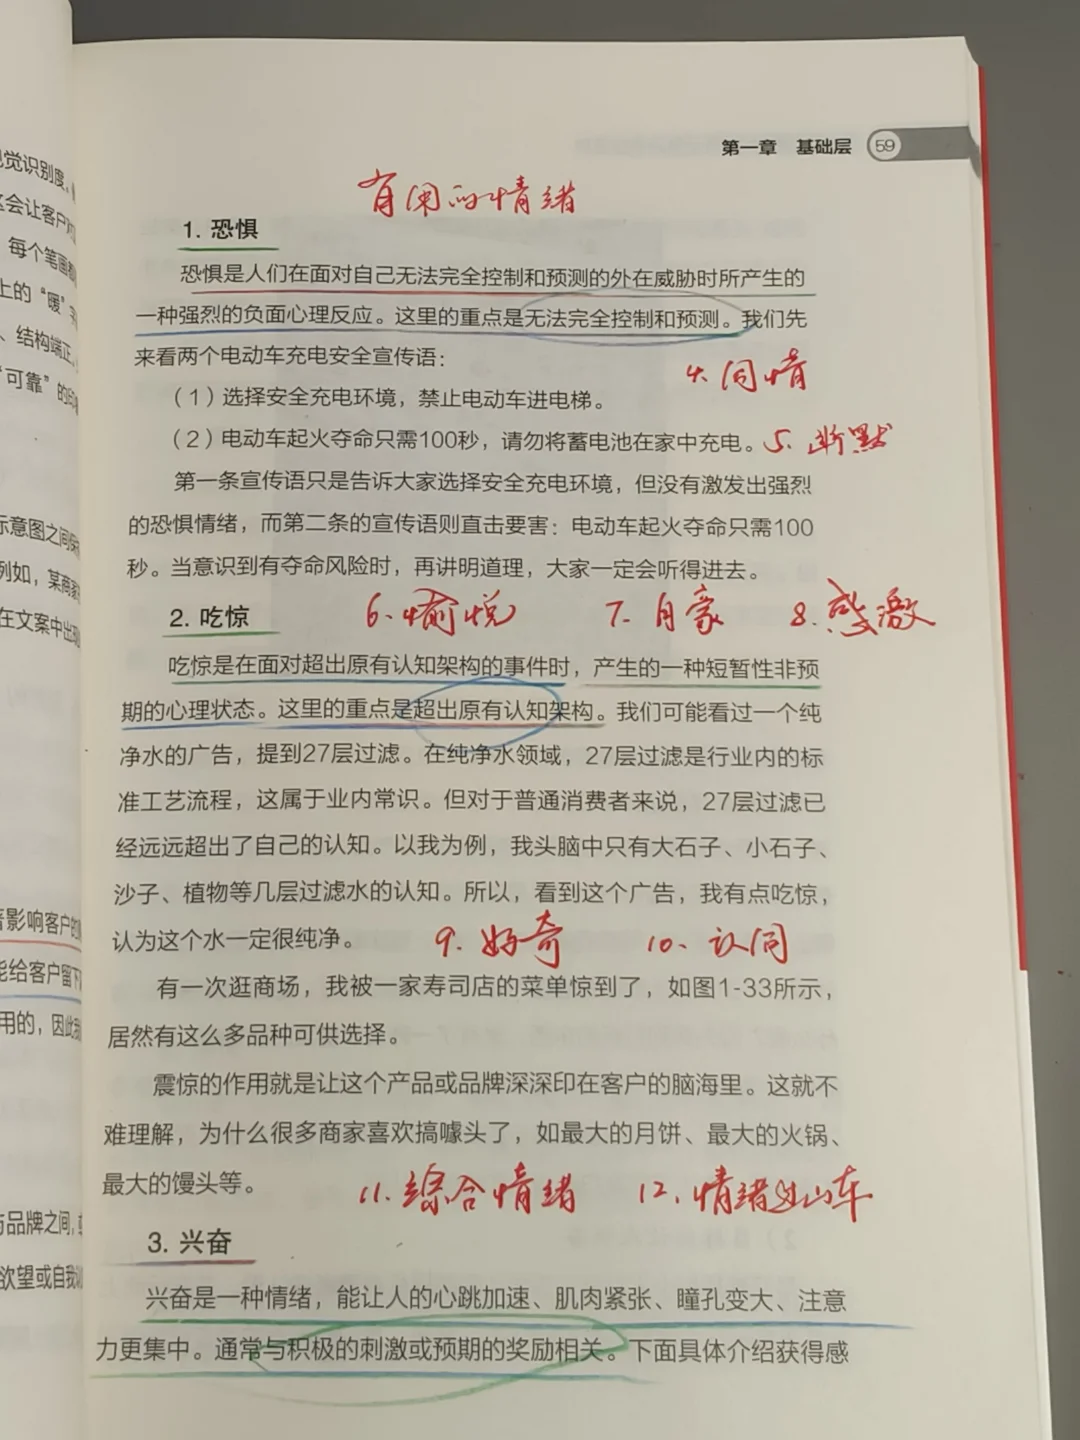 觉识别度。
这会让客户对
每个笔画都
上的“暖”字
、结构端正。
“可靠”的印
示意图之间保
例如，某商家
在文案中出现
影响客户的
能给客户留下
用的，因此
与品牌之间，
欲望或自我
第一章 基础层 59
有用的情绪
1. 恐惧
恐惧是人们在面对自己无法完全控制和预测的外在威胁时所产生的
一种强烈的负面心理反应。这里的重点是无法完全控制和预测。我们先
来看两个电动车充电安全宣传语：
4. 同情
（1）选择安全充电环境，禁止电动车进电梯。
（2）电动车起火夺命只需100秒，请勿将蓄电池在家中充电。
5、幽默
第一条宣传语只是告诉大家选择安全充电环境，但没有激发出强烈
的恐惧情绪，而第二条的宣传语则直击要害：电动车起火夺命只需100
秒。当意识到有夺命风险时，再讲明道理，大家一定会听得进去。
2. 吃惊
6、愉悦 7、自豪 8.感激
吃惊是在面对超出原有认知架构的事件时，产生的一种短暂性非预
期的心理状态。这里的重点是超出原有认知架构。我们可能看过一个纯
净水的广告，提到27层过滤。在纯净水领域，27层过滤是行业内的标
准工艺流程，这属于业内常识。但对于普通消费者来说，27层过滤已
经远远超出了自己的认知。以我为例，我头脑中只有大石子、小石子、
沙子、植物等几层过滤水的认知。所以，看到这个广告，我有点吃惊，
认为这个水一定很纯净。
9、好奇 10、认同
有一次逛商场，我被一家寿司店的菜单惊到了，如图1-33所示，
居然有这么多品种可供选择。
震惊的作用就是让这个产品或品牌深深印在客户的脑海里。这就不
难理解，为什么很多商家喜欢搞噱头了，如最大的月饼、最大的火锅、
最大的馒头等。
11、综合情绪 12、情绪过山车
3. 兴奋
兴奋是一种情绪，能让人的心跳加速、肌肉紧张、瞳孔变大、注意
力更集中。通常与积极的刺激或预期的奖励相关。下面具体介绍获得感